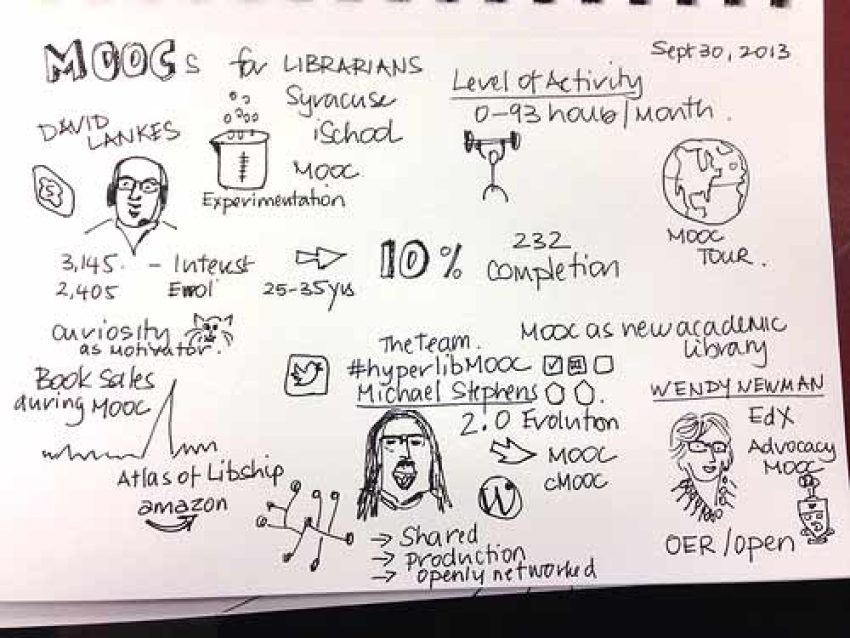 MOOCs for LIBRARIANS
Sept 30, 2013
Syracuse
iSchool
MOOC
Experimentation
DAVID
LANKES
S
Level of Activity
0-93 hours/Month.
MOOC
TOUR.
3,145. - Interest
2,405 Enrol
25-35yrs
10%
232
completion
curiosity
as motivator.
Book Sales
during MOOC
Atlas of Libship
amazon
The team.
#hyperlibMOOC
Michael Stephens
2.0 Evolution
MOOC
cMOOC
W
→ Shared
→ production
→ openly networked
MOOC as new academic
library
WENDY NEWMAN
EdX
Advocacy
MOOC
OER/open